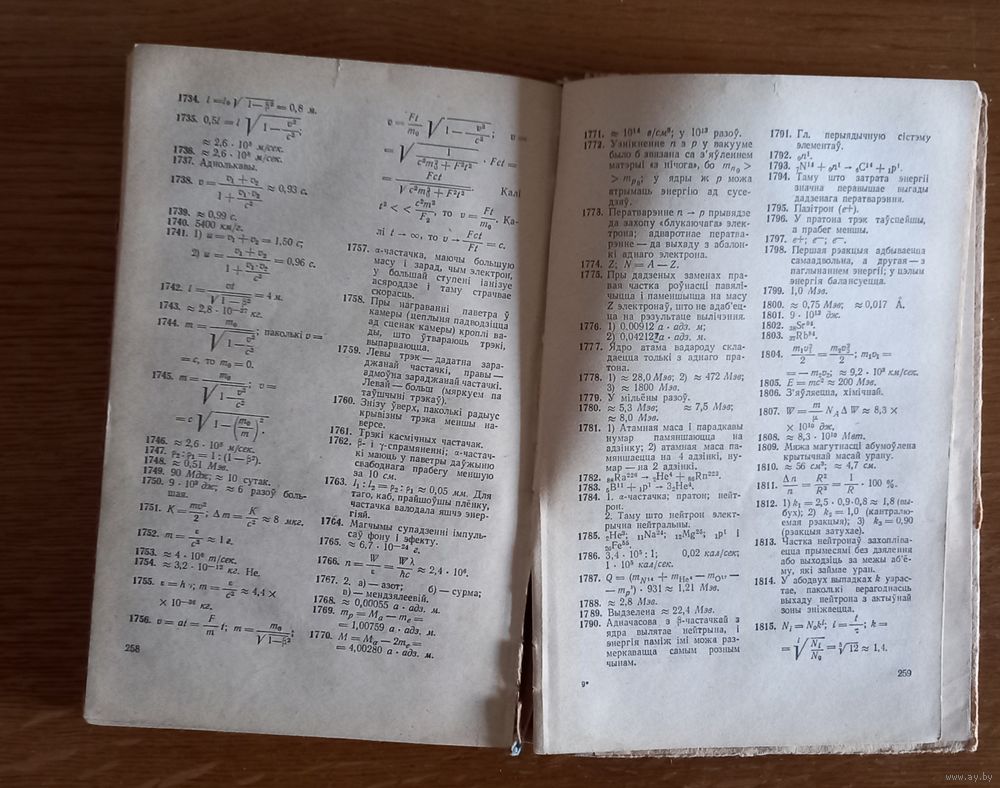 1734. l = l₀ √(1—β²) = 0,8 м.
1735. 0,5l = l √(1 — v²/c²);
≈ 2,6 · 10⁸ м/сек.
1736. ≈ 2,6 · 10⁸ м/сек.
1737. Аднолькавы.
1738. v = (v₁ + v₂)/(1 + v₁·v₂/c²) ≈ 0,93 c.
1739. ≈ 0,99 c.
1740. 5400 км/г.
1741. 1) u = v₁ + v₂ = 1,50 c;
2) u = (v₁ + v₂)/(1 + v₁·v₂/c²) = 0,96 c.
1742. l = vt/√(1—β²) = 4 м.
1743. ≈ 2,8 · 10⁻²⁷ кг.
1744. m = m₀/√(1 — v²/c²); паколькі v =
= c, то m₀ = 0.
1745. m = m₀/√(1 — v²/c²); v =
= c √(1 — (m₀/m)²).
1746. ≈ 2,6 · 10⁸ м/сек.
1747. ρ₂ : ρ₁ = 1 : (1 — β²).
1748. ≈ 0,51 Мэв.
1749. 90 Мдж; ≈ 10 сутак.
1750. 9 · 10⁹ дж; ≈ 6 разоў боль-
шая.
1751. K = mv²/2; Δm = K/c² ≈ 8 мкг.
1752. m = ε/c² ≈ 1 г.
1753. ≈ 4 · 10⁶ т/сек.
1754. ≈ 3,2 · 10⁻¹² кг. Не.
1755. ε = hν; m = ε/c² ≈ 4,4 ×
× 10⁻³⁶ кг.
1756. v = at = F/m t; m = m₀/√(1—β²);
258
v = Ft/m₀ √(1 — v²/c²); v =
= √(1/(c²m₀² + F²t²)) · Fct =
= Fct/√(c²m₀² + F²t²). Калі
t² << c²m²/F₂, то v = Ft/m₀. Ка-
лі t → ∞, то v → Fct/Ft = c.
1757. α-частачка, маючы большую
масу і зарад, чым электрон,
у большай ступені іанізуе
асяроддзе і таму страчвае
скорасць.
1758. Пры награванні паветра ў
камеры (цеплыня падводзіцца
ад сценак камеры) кроплі ва-
ды, што ўтвараюць трэкі,
выпарваюцца.
1759. Левы трэк — дадатна зара-
джанай частачкі, правы —
адмоўна зараджанай частачкі.
Левай — больш (мяркуем па
таўшчыні трэкаў).
1760. Знізу ўверх, паколькі радыус
крывізны трэка меншы на-
версе.
1761. Трэкі касмічных частачак.
1762. β- і γ-спрамяненні; α-частач-
кі маюць у паветры даўжыню
свабоднага прабегу меншую
за 10 см.
1763. l₁ : l₂ = ρ₂ : ρ₁ ≈ 0,05 мм. Для
таго, каб, прайшоўшы плёнку,
частачка валодала яшчэ энер-
гіяй.
1764. Магчымы супадзенні імпуль-
саў фону і эфекту.
1765. ≈ 6,7 · 10⁻²⁴ г.
1766. n = W/ε = Wλ/hc ≈ 2,4 · 10⁶.
1767. 2. а) — азот; б) — сурма;
в) — мендзялеевій.
1768. ≈ 0,00055 а · адз. м.
1769. mₚ = Mₐ — mₑ =
= 1,00759 а · адз. м.
1770. M = Mₐ — 2mₑ =
= 4,00280 а · адз. м.
1771. ≈ 10¹⁴ г/см³; у 10¹³ разоў.
1772. Узнікненне n з p у вакууме
было б звязана са з'яўленнем
матэрыі «з нічога», бо mₙ₀ >
> mₚ₀; у ядры ж p можа
атрымаць энергію ад сусе-
дзяў.
1773. Ператварэнне n → p прывядзе
да захопу «блукаючага» элек-
трона; адваротнае ператва-
рэнне — да выхаду з абалон-
кі аднаго электрона.
1774. Z; N = A — Z.
1775. Пры дадзеных заменах пра-
вая частка роўнасці павялі-
чыцца і паменшыцца на масу
Z электронаў, што не адаб'ец-
ца на рэзультаце вылічэння.
1776. 1) 0,00912 а · адз. м;
2) 0,04212 а · адз. м.
1777. Ядро атама вадароду скла-
даецца толькі з аднаго пра-
тона.
1778. 1) ≈ 28,0 Мэв; 2) ≈ 472 Мэв;
3) ≈ 1800 Мэв.
1779. У мільёны разоў.
1780. ≈ 5,3 Мэв; ≈ 7,5 Мэв;
≈ 8,0 Мэв.
1781. 1) Атамная маса і парадкавы
нумар памяншаюцца на
адзінку; 2) атамная маса па-
мяншаецца на 4 адзінкі, ну-
мар — на 2 адзінкі.
1782. ₈₈Ra²²⁶ → ₂He⁴ + ₈₆Rn²²².
1783. ₅B¹¹ + ₁p¹ → 3₂He⁴.
1784. 1. α-частачка; пратон; нейт-
рон.
2. Таму што нейтрон элект-
рычна нейтральны.
1785. ₂He³; ₁₁Na²⁴; ₁₂Mg²⁴; ₁p¹ і
₂₆Fe⁵⁵
1786. 3,4 · 10⁵ : 1; 0,02 кал/сек;
1 · 10⁸ кал/сек.
1787. Q = (m_N¹⁴ + m_He⁴ — m_O¹⁷ —
— mₚ¹) · 931 ≈ 1,21 Мэв.
1788. ≈ 2,8 Мэв.
1789. Выдзелена ≈ 22,4 Мэв.
1790. Адначасова з β-частачкай з
ядра вылятае нейтрына, і
энергія паміж імі можа раз-
меркавацца самым розным
чынам.
9*
1791. Гл. перыядычную сістэму
элементаў.
1792. ₀n¹.
1793. ₇N¹⁴ + ₀n¹ → ₆C¹⁴ + ₁p¹.
1794. Таму што затрата энергіі
значна перавышае выгады
дадзенага ператварэння.
1795. Пазітрон (e+).
1796. У пратона трэк таўсцейшы,
а прабег меншы.
1797. e+; e—; e—.
1798. Першая рэакцыя адбываецца
самаадвольна, а другая — з
паглынаннем энергіі; у цэлым
энергія балансуецца.
1799. 1,0 Мэв.
1800. ≈ 0,75 Мэв; ≈ 0,017 Å.
1801. 9 · 10¹³ дж.
1802. ₃₈Sr⁹⁴.
1803. ₃₇Rb⁹⁴.
1804. m₁v₁²/2 = m₂v₂²/2; m₁v₁ =
= — m₂v₂; ≈ 9,2 · 10³ км/сек.
1805. E = mc² ≈ 200 Мэв.
1806. З'яўляецца, хімічнай.
1807. W = m/μ N_A Δ W ≈ 8,3 ×
× 10¹⁰ дж,
1808. ≈ 8,3 · 10¹⁰ Мвт.
1809. Мяжа магутнасці абумоўлена
крытычнай масай урану.
1810. ≈ 56 см³; ≈ 4,7 см.
1811. Δn/n = R²/R³ = 1/R · 100 %.
1812. 1) k₁ = 2,5 · 0,9 · 0,8 ≈ 1,8 (вы-
бух); 2) k₂ = 1,0 (кантралю-
емая рэакцыя); 3) k₃ = 0,90
(рэакцыя затухае).
1813. Частка нейтронаў захопліва-
ецца прымесямі без дзялення
або выходзіць за межы аб'ё-
му, які займае уран.
1814. У абодвух выпадках k узрас-
тае, паколькі верагоднасць
выхаду нейтрона з актыўнай
зоны зніжаецца.
1815. Nᵢ = N₀kⁱ; i = t/τ; k =
= ⁱ√(Nᵢ/N₀) = √12 ≈ 1,4.
259
www.ay.by